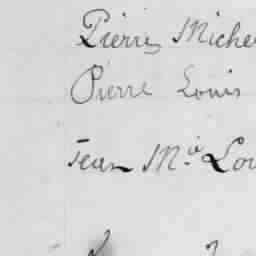 Pierre Miche
Pierre Louis
Jean M.ie Lou